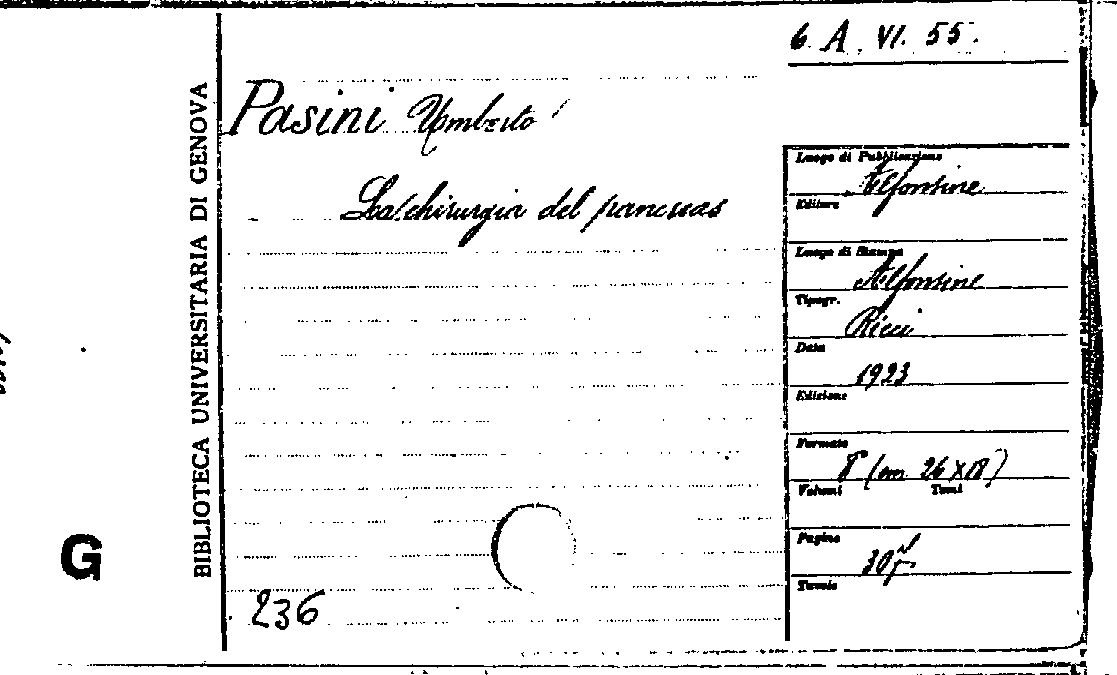 6. A. VI. 55.
BIBLIOTECA UNIVERSITARIA DI GENOVA
Pasini Umberto
La chirurgia del pancreas
Luogo di Pubblicazione
Alfonsine
Editore
Luogo di Stampa
Alfonsine
Tipogr.
Ricci
Data
1923
Edizione
Formato
8° (cm 26 x 18)
Volumi Tomi
Pagine
Tavole
G
236